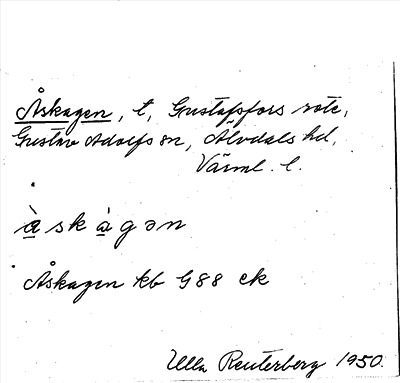 Åskagen, t, Gustafsfors rote,
Gustav Adolfs sn, Älvdals hd,
Värml. l.
å̀skà̱gən
Åskagen kb G88 ek
Ulla Reuterberg 1950.